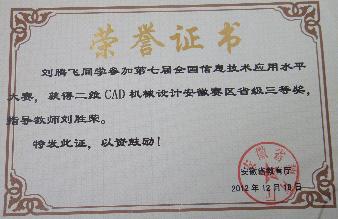 荣誉证书
刘腾飞同学参加第七届全国信息技术应用水平
大赛，获得二级CAD机械设计安徽赛区省级三等奖，
指导教师刘胜荣。
特发此证，以资鼓励！
安徽省教育厅
2012年12月18日